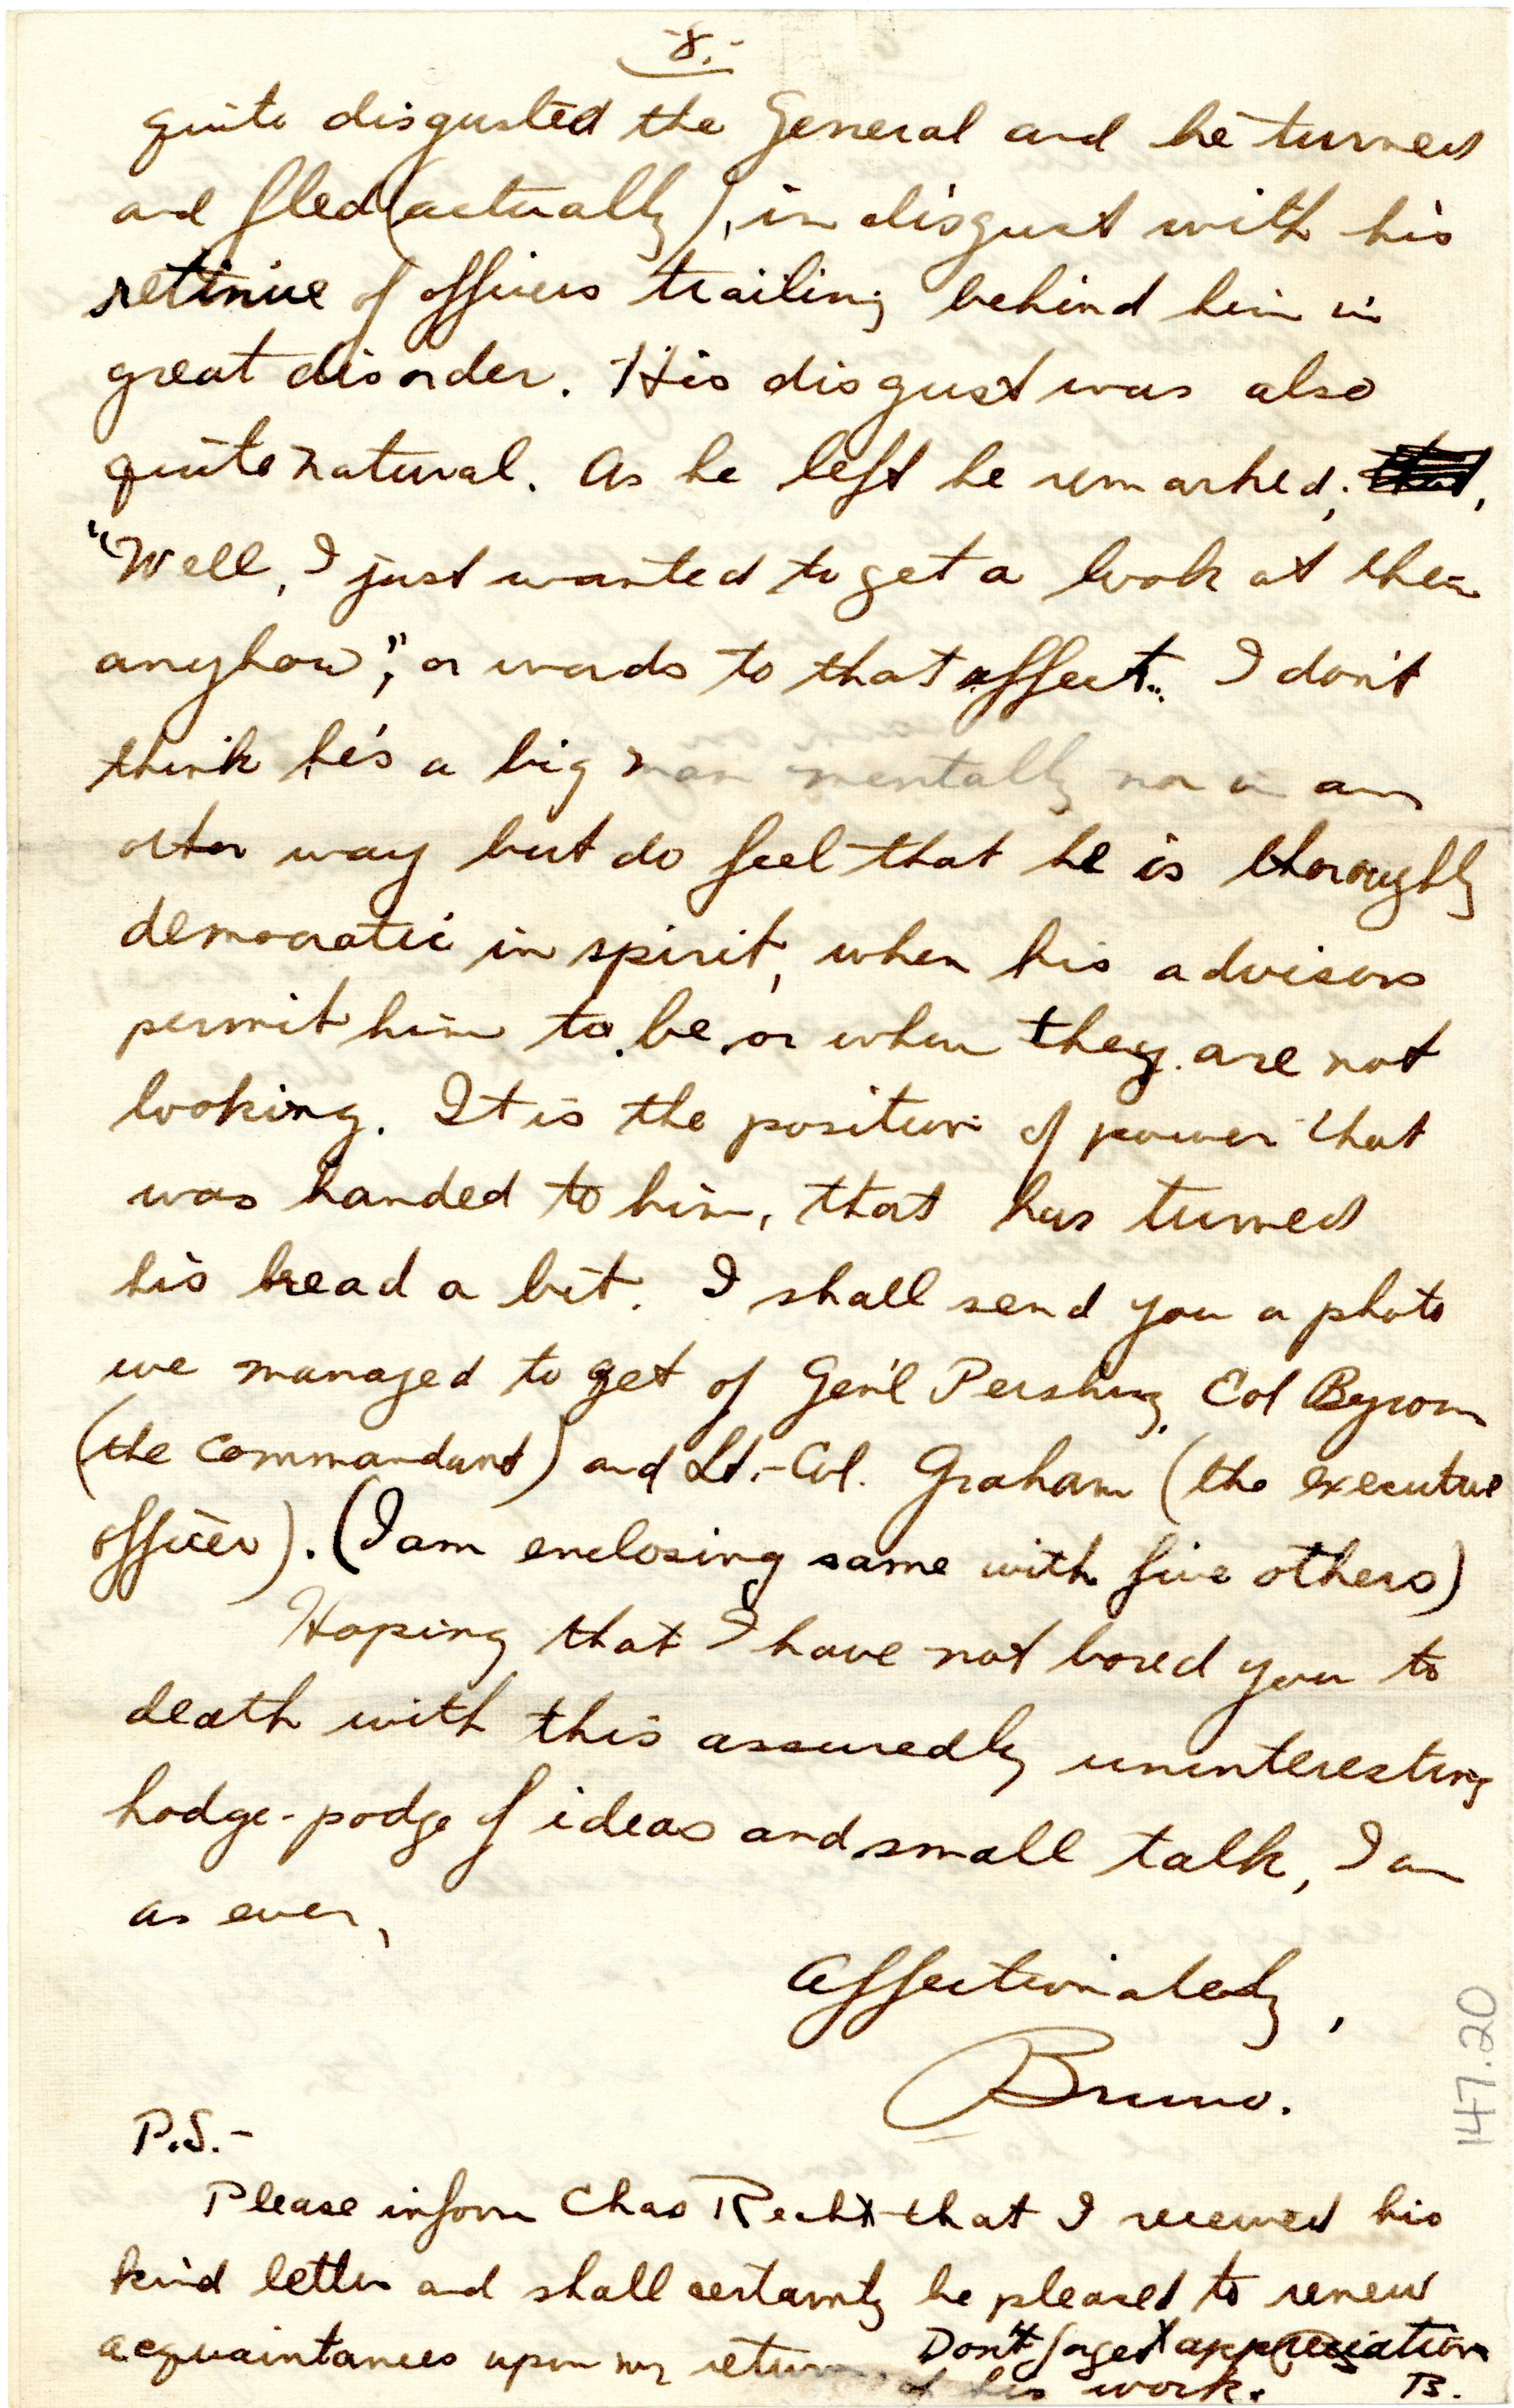 -8.-
quite disgusted the General and he turned
and fled (actually), in disgust with his
retinue of officers trailing behind him in
great disorder. His disgust was also
quite natural. As he left he remarked;
"Well, I just wanted to get a look at them
anyhow", or words to that effect. I don't
think he's a big man mentally nor in any
other way but do feel that he is thoroughly
democratic in spirit, when his advisors
permit him to be or when they are not
looking. It is the position of power that
was handed to him, that has turned
his head a bit. I shall send you a photo
we managed to get of Gen'l Pershing, Col Byrom
(the commandant) and Lt.-Col. Graham (the executive
officer). (I am enclosing same with five others)
Hoping that I have not bored you to
death with this assuredly uninteresting
hodge-podge of ideas and small talk, I am
as ever,
Affectionately,
Bruno.
P.S.-
Please inform Chas Recht that I received his
kind letter and shall certainly be pleased to renew
acquaintances upon my return Don't forget appreciation
of his work. B.
147.20